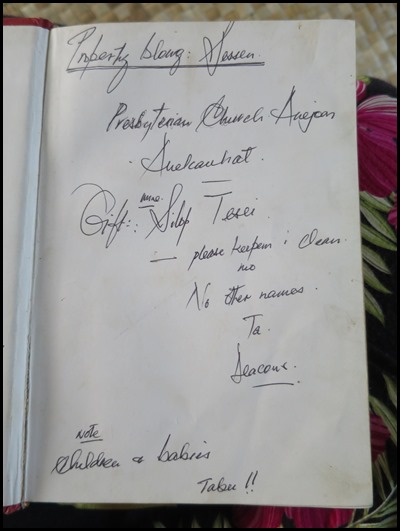 Property blong: Sessen.
Presbyterian Church Anejom
Anelcauhat.
Gift:: mme. Silep Tesei.
— please keepem i clean
mo
No other names.
Ta.
Deacons.
Note
Children & babies
Tabu!!